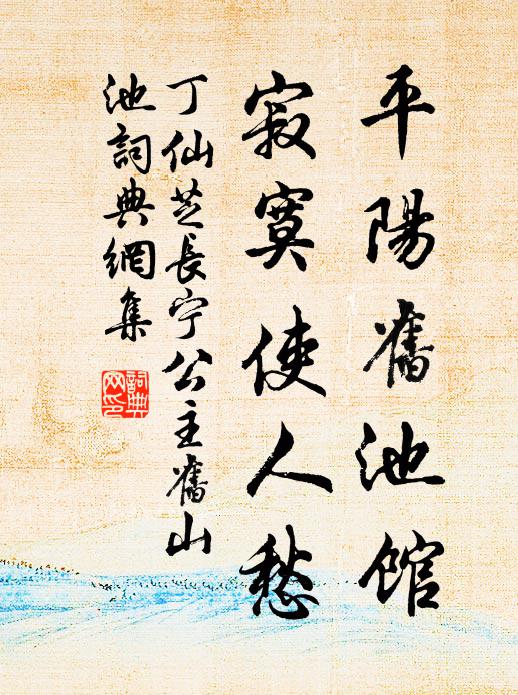 平陽舊池館
寂寞使人愁
丁仙芝長宁公主舊山
池詞典網集
詞典网印